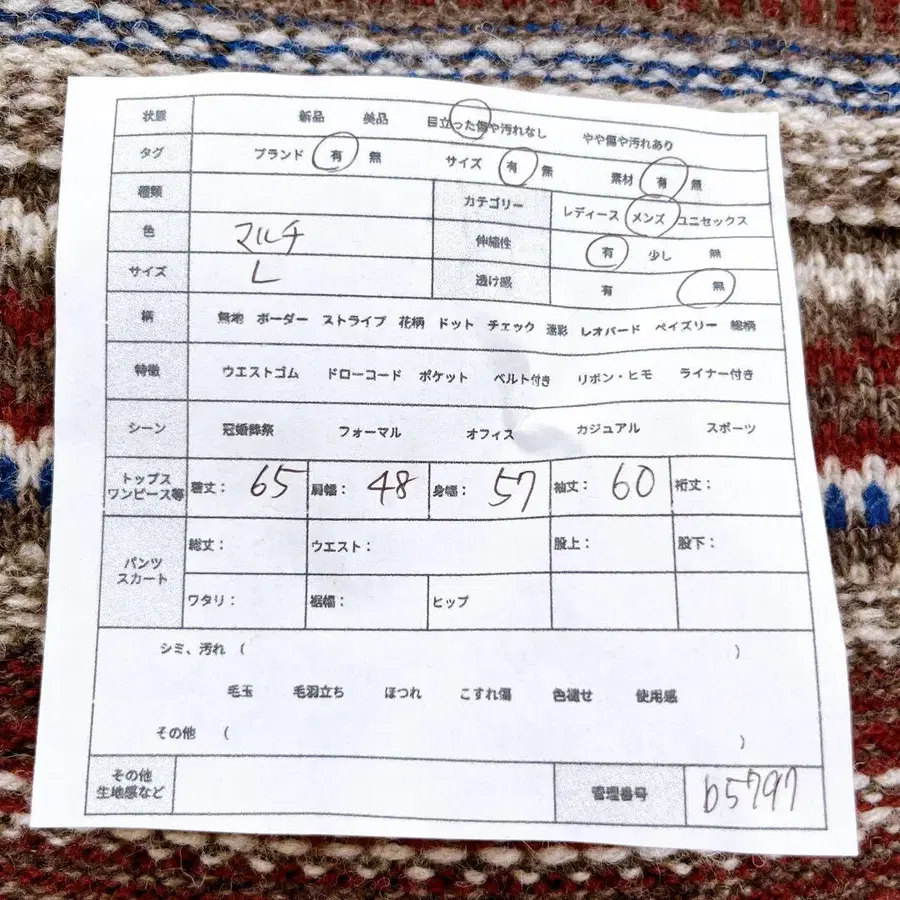 状態 新品 美品 目立った傷や汚れなし やや傷や汚れあり
タグ ブランド 有 無 サイズ 有 無 素材 有 無
種類 カテゴリー レディース メンズ ユニセックス
色 マルチ 伸縮性 有 少し 無
サイズ L 透け感 有 無
柄 無地 ボーダー ストライプ 花柄 ドット チェック 迷彩 レオパード ペイズリー 総柄
特徴 ウエストゴム ドローコード ポケット ベルト付き リボン・ヒモ ライナー付き
シーン 冠婚葬祭 フォーマル オフィス カジュアル スポーツ
トップス
ワンピース等 着丈: 65 肩幅: 48 身幅: 57 袖丈: 60 裄丈:
パンツ
スカート
総丈: ウエスト: 股上: 股下:
ワタリ: 裾幅: ヒップ
シミ、汚れ ( )
毛玉 毛羽立ち ほつれ こすれ傷 色褪せ 使用感
その他 ( )
その他
生地感など 管理番号 b5797